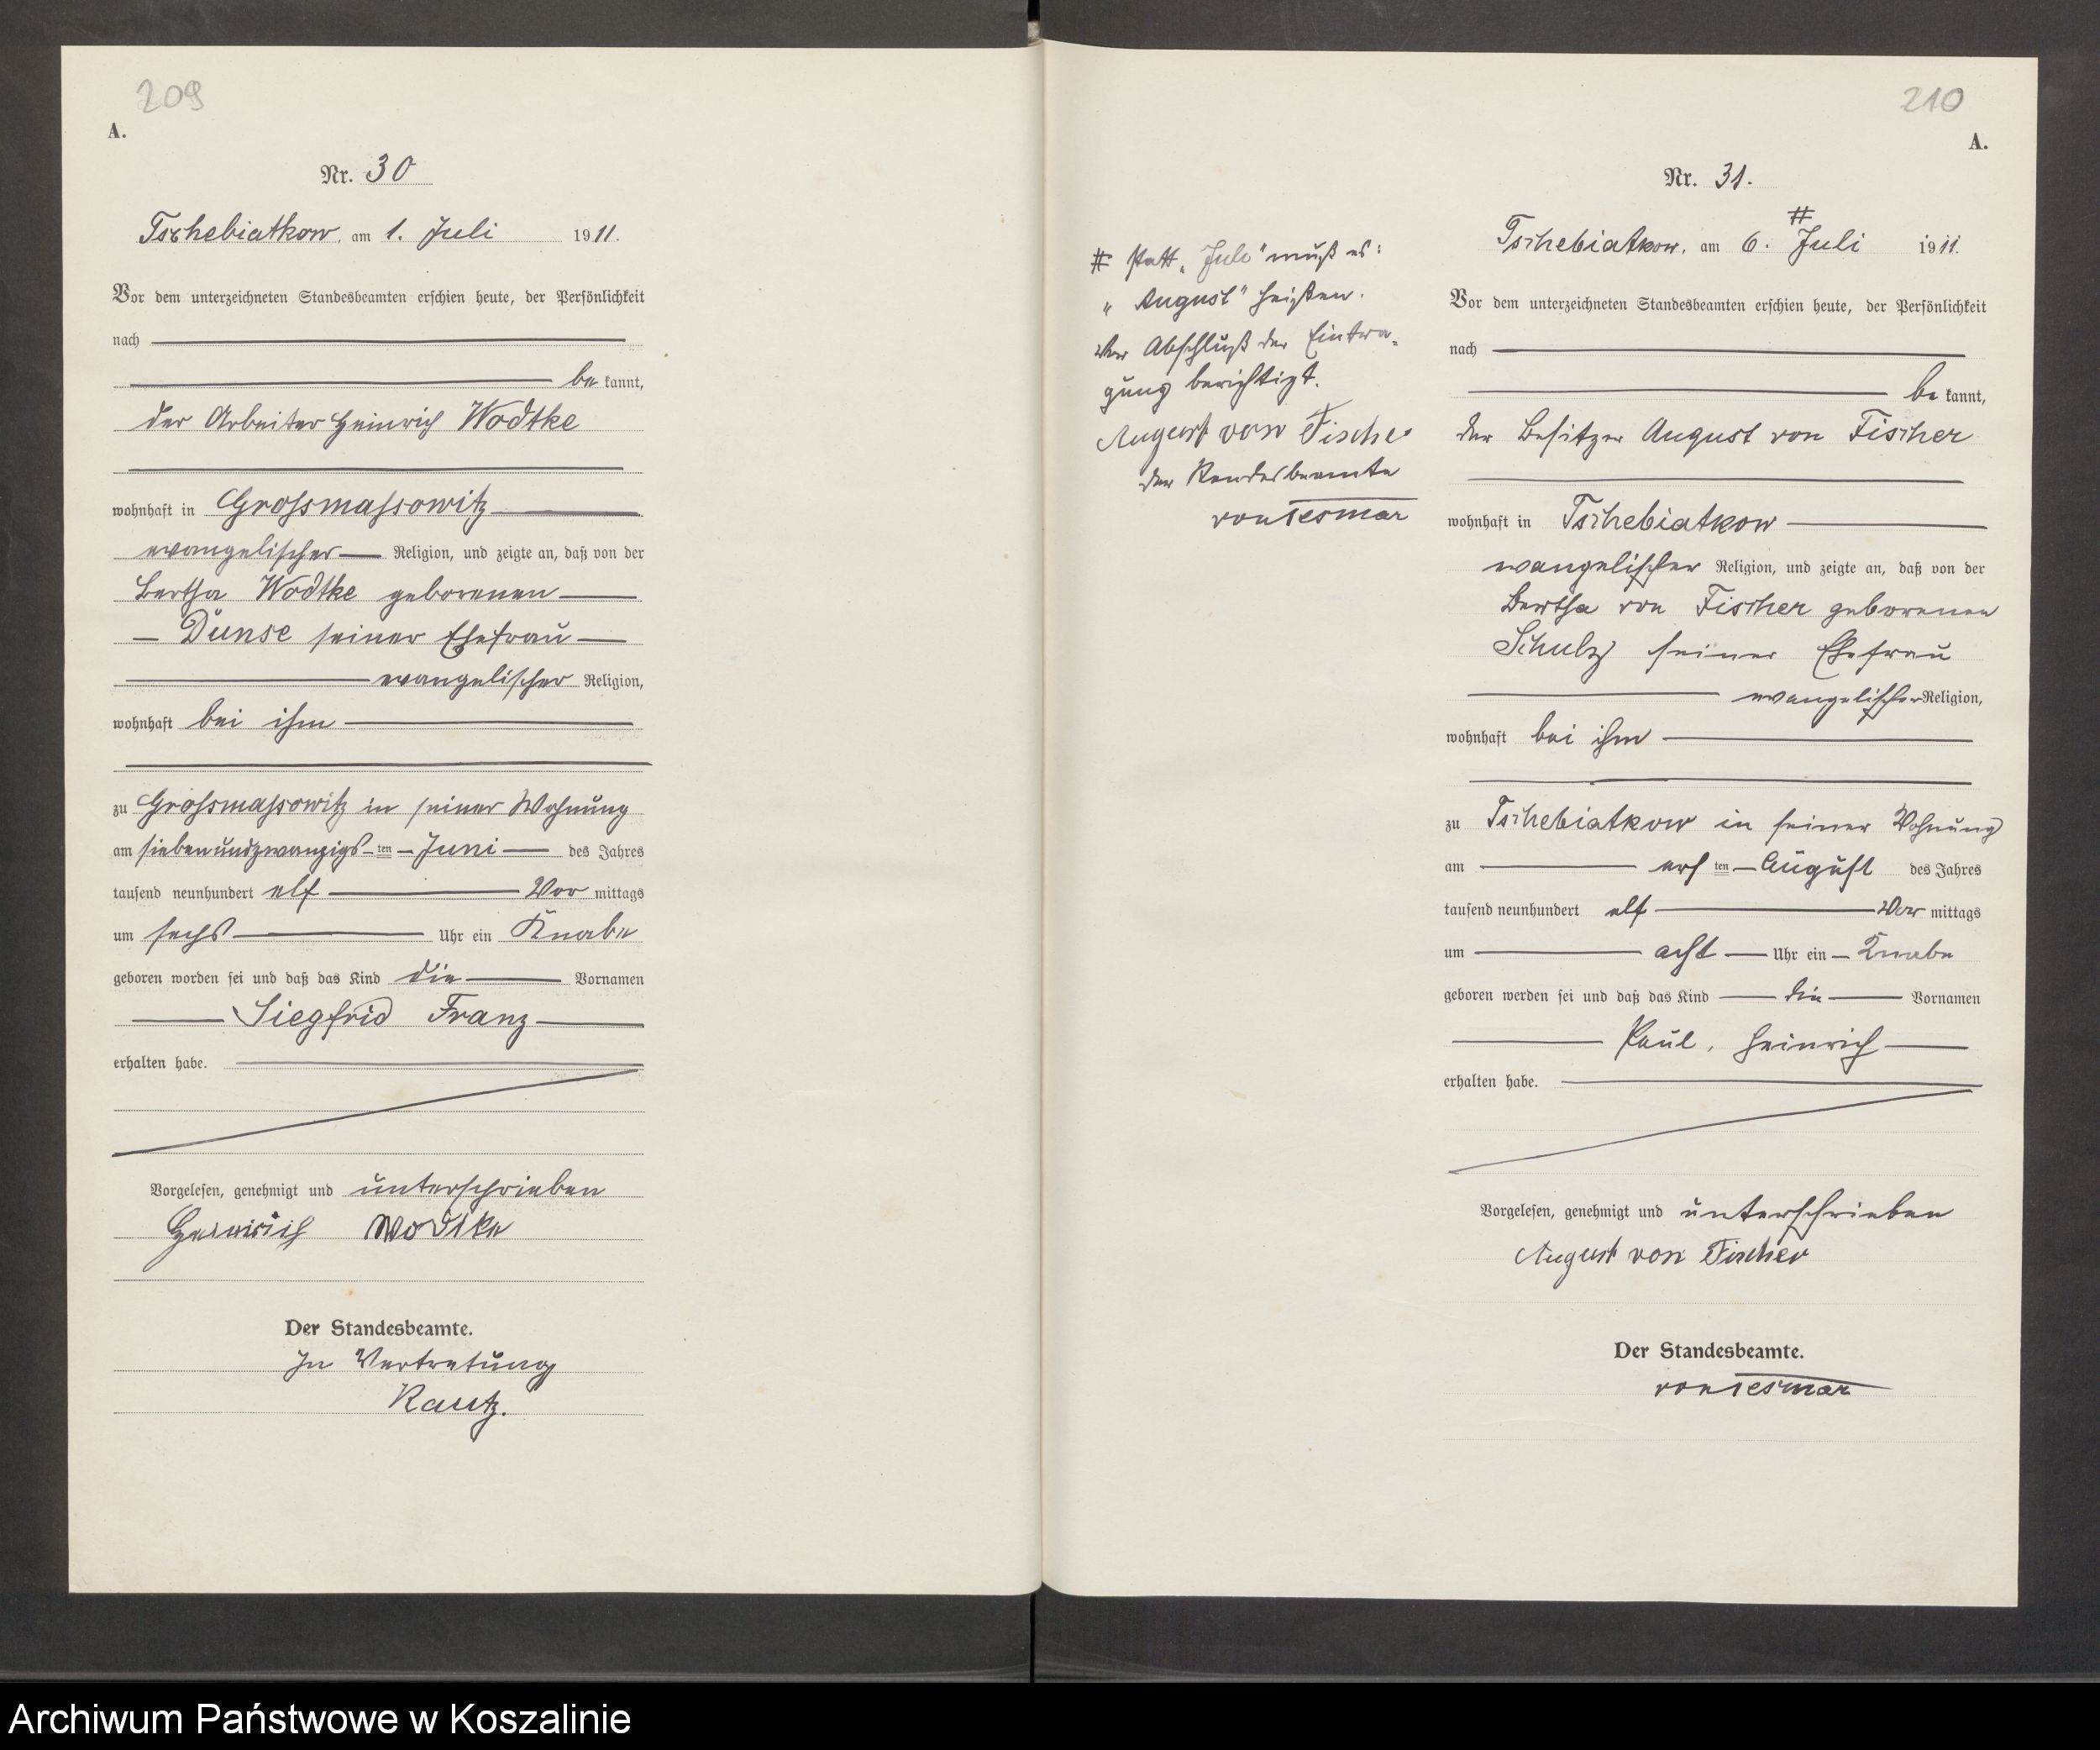 209
A.
Nr. 30
Tschebiatkow, am 1. Juli 1911.
Vor dem unterzeichneten Standesbeamten erschien heute, der Persönlichkeit
nach
be kannt,
der Arbeiter Heinrich Wodtke
wohnhaft in Grossmassowitz
evangelischer Religion, und zeigte an, daß von der
Bertha Wodtke geborenen
Dunse seiner Ehefrau
evangelischer Religion,
wohnhaft bei ihm
zu Grossmassowitz in seiner Wohnung
am siebenundzwanzigs ten Juni des Jahres
tausend neunhundert elf Vor mittags
um sechs Uhr ein Knabe
geboren worden sei und daß das Kind die Vornamen
Siegfrid Franz
erhalten habe.
Vorgelesen, genehmigt und unterschrieben
Heinrich Wodtke
Der Standesbeamte.
In Vertretung
Rautz.
210
A.
Nr. 31.
Tschebiatkow, am 6. # Juli 1911.
Vor dem unterzeichneten Standesbeamten erschien heute, der Persönlichkeit
nach
be kannt,
der Besitzer August von Fischer
wohnhaft in Tschebiatkow
evangelischer Religion, und zeigte an, daß von der
Bertha von Fischer geborenen
Schulz seiner Ehefrau
evangelischer Religion,
wohnhaft bei ihm
zu Tschebiatkow in seiner Wohnung
am ers ten August des Jahres
tausend neunhundert elf Vor mittags
um acht Uhr ein Knabe
geboren werden sei und daß das Kind die Vornamen
Paul, Heinrich
erhalten habe.
Vorgelesen, genehmigt und unterschrieben
August von Fischer
Der Standesbeamte.
von Tesmar
# statt „Juli" muß es:
„August" heißen.
Vor Abschluß der Eintra-
gung berichtigt.
August von Fischer
der Standesbeamte
von Tesmar
Archiwum Państwowe w Koszalinie